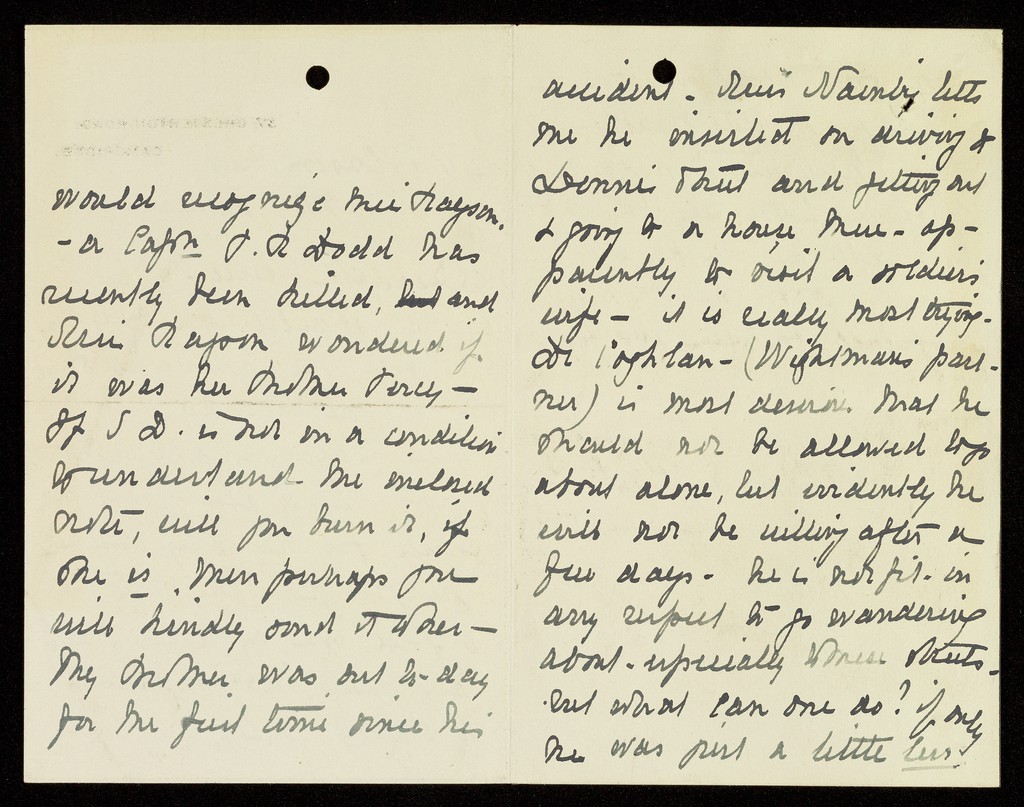 would recognize Miss Rayson.
- a Captn P. R Dodd has
recently been killed, but and
Miss Rayson wondered if
it was her brother Percy -
If S D. is not in a condition
to understand the enclosed
note, will you burn it, if
she is then perhaps you
will kindly send it to her -
My brother was out to-day
for the first time since his
accident - Miss Naenby tells
me he insisted on driving to
Dennis Street and getting out
& going to a house there - ap-
parently to visit a soldier's
wife - it is really most trying -
Dr Coghlan - (Wightman's part-
ner) is most desirous that he
should not be allowed to go
about alone, but evidently he
will not be willing after a
few days - he is not fit in
any respect to go wandering
about - especially to these streets -
but what can one do? if only
he was just a little less